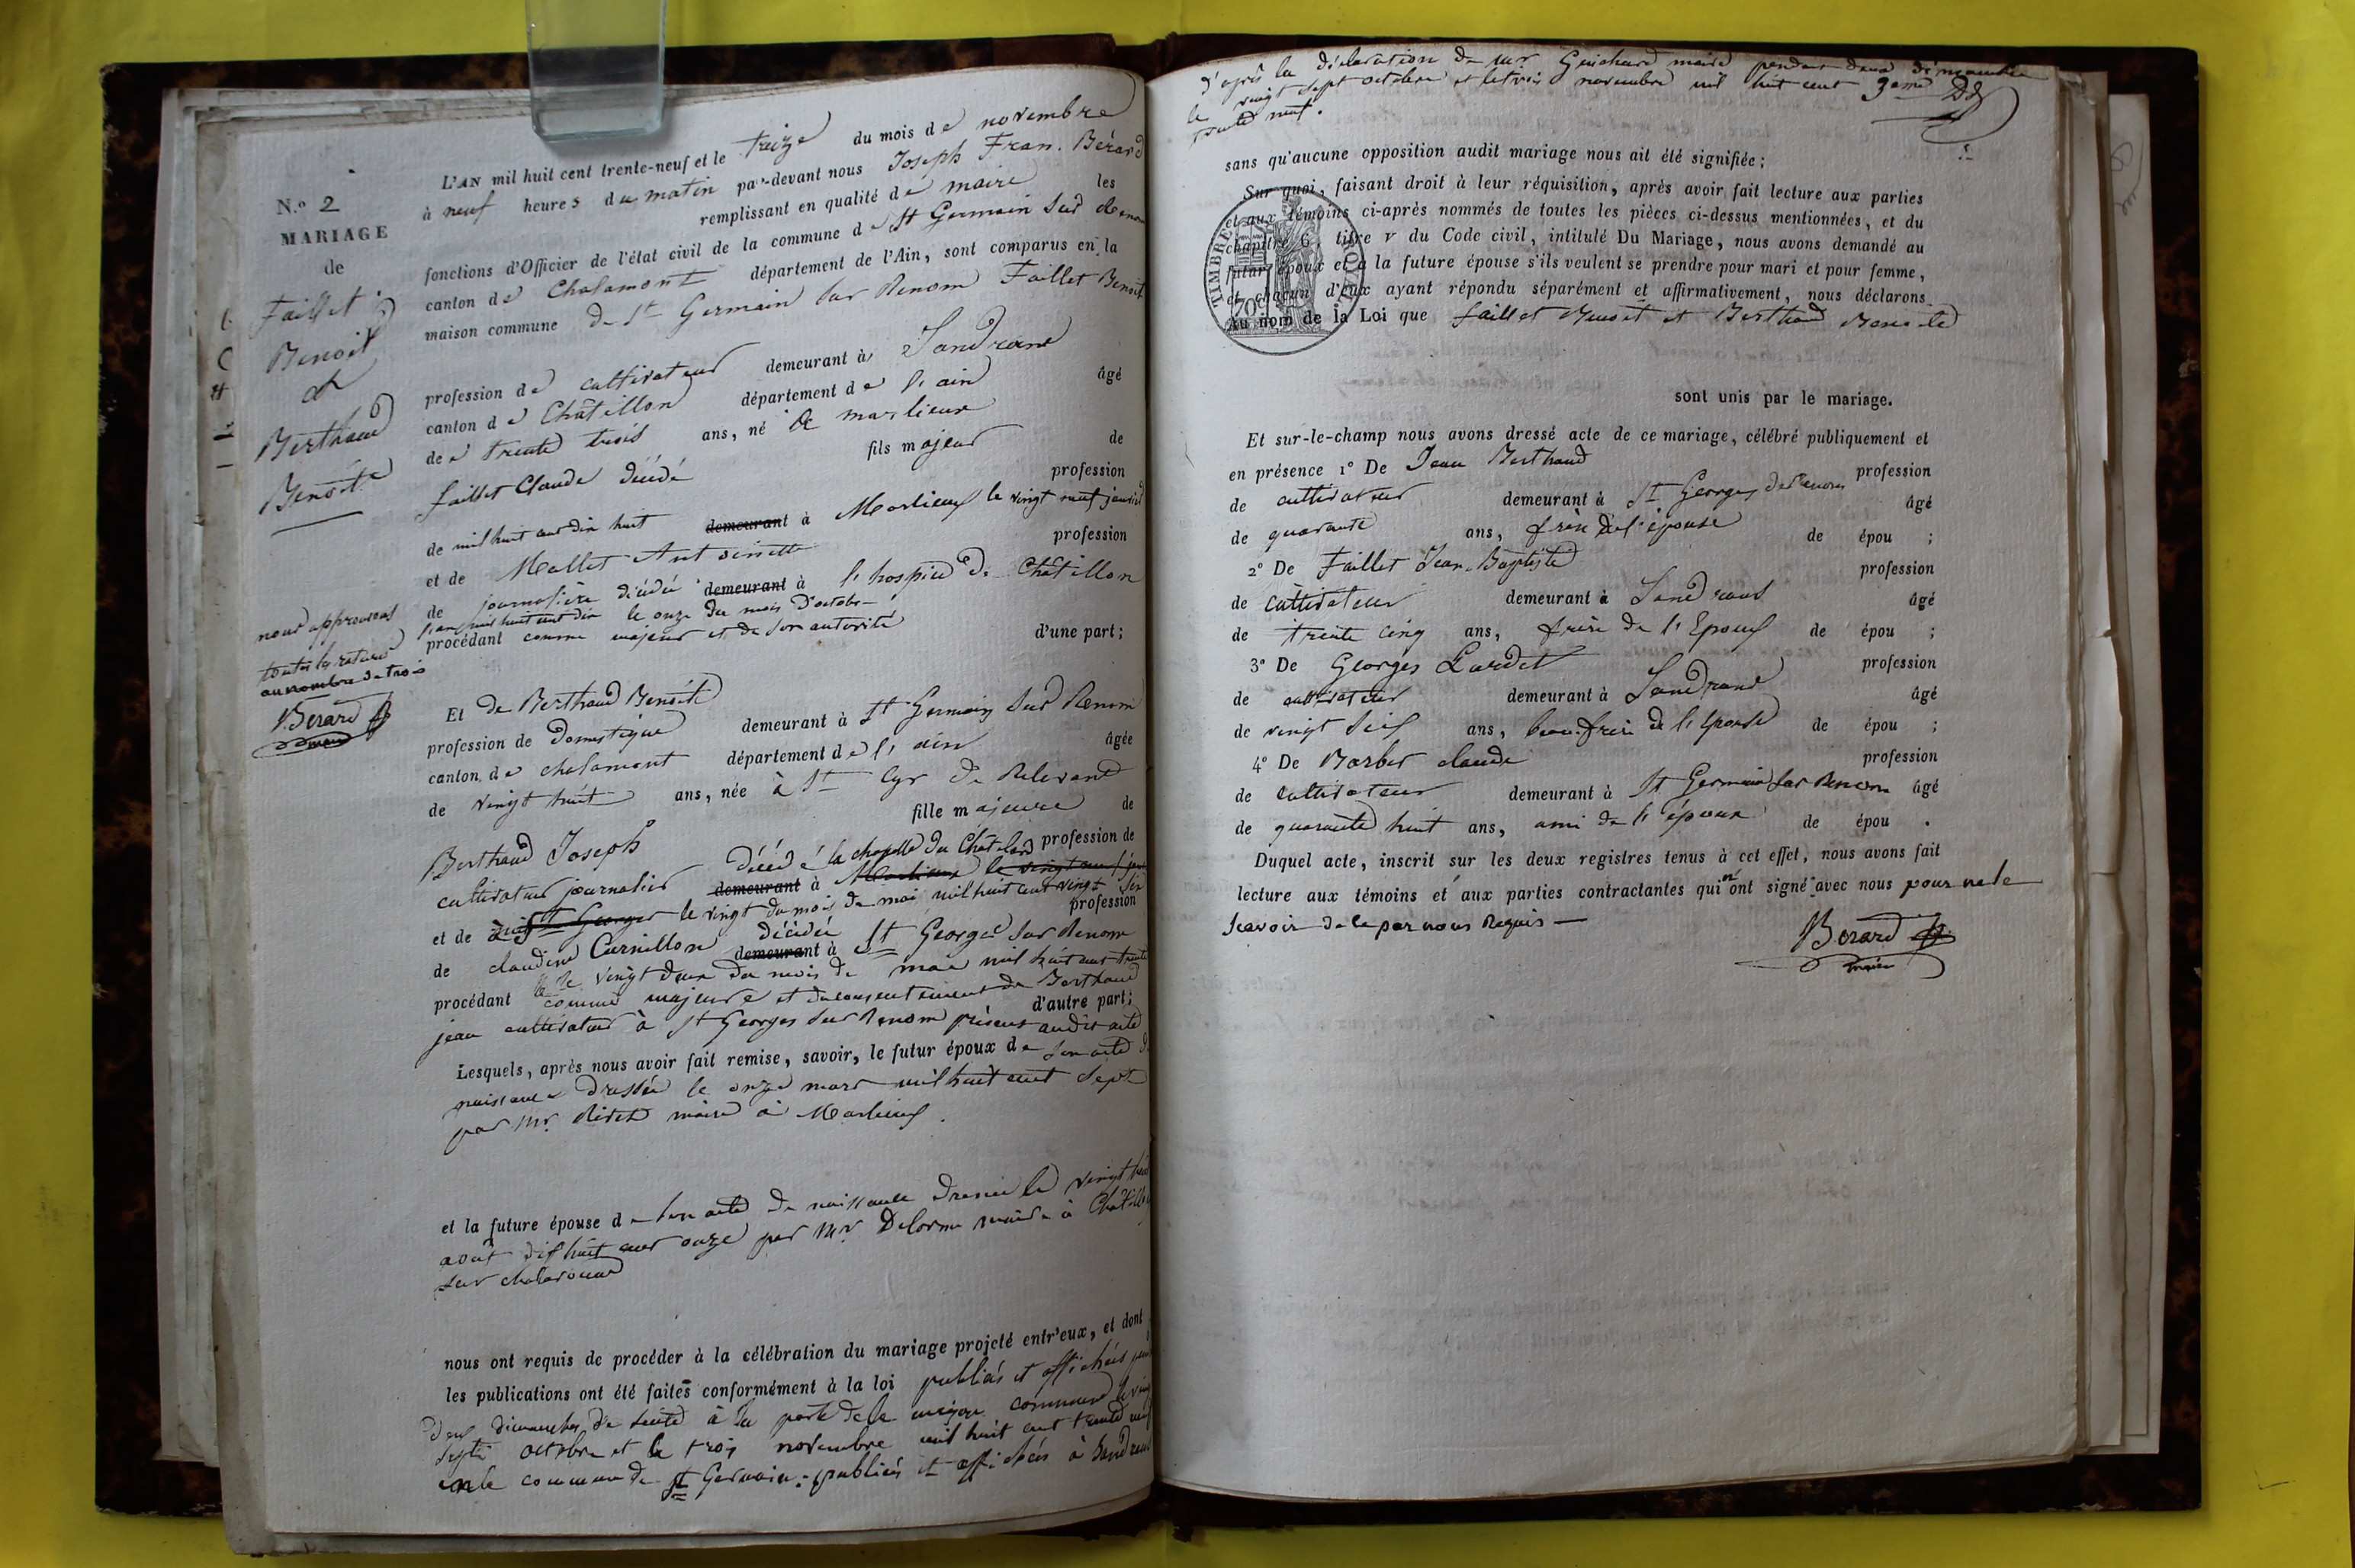 N.º 2
MARIAGE
de
Faillet
Benoit
et
Berthaud
Benoite
nous approuvons
toutes les ratures
au nombre de trois
Berard
maire
L'AN mil huit cent trente-neuf et le treize du mois de novembre
à neuf heures du matin par-devant nous Joseph Fran. Bérard
remplissant en qualité de maire les
fonctions d'Officier de l'état civil de la commune d St Germain sur Renom
canton de Chalamont département de l'Ain, sont comparus en la
maison commune de St Germain sur Renom Faillet Benoit
profession de cultivateur demeurant à Sandrans
canton de Châtillon département de l'ain âgé
de trente trois ans, né à marlieux
fils majeur de
faillet Claude décédé profession
de mil huit cent dix huit demeurant à Marlieux le vingt neuf janvier
et de Mallet Antoinette profession
de journalière décédé demeurant à l'hospice de Châtillon
l'an mil huit cent dix le onze du mois d'octobre
procédant comme majeur et de son autorité d'une part;
Et de Berthaud Benoite
profession de Domestique demeurant à St Germain sur Renom
canton de chalamont département de l'ain âgée
de vingt huit ans, née à St Cyr de Relevant
fille majeure de
Berthaud Joseph décédé à la chapelle du Châtelard profession de
cultivateur journalier demeurant à Marlieux le vingt
à St Georges le vingt du mois de mai mil huit cent vingt six
et de profession
de claudine Curnillon décédée demeurant à St Georges sur Renom
le vingt deux du mois de mai mil huit cent trente
procédant comme majeure et du consentement de Berthaud d'autre part;
jean cultivateur à St Georges sur Renom présent audit acte
Lesquels, après nous avoir fait remise, savoir, le futur époux de son acte de
naissance dressée le onze mars mil huit cent sept
par mr maire à Marlieux.
et la future épouse de son acte de naissance dressée le vingt huit
août dix huit cent onze par Mr Delorme maire à Châtillon
sur chalaronne
nous ont requis de procéder à la célébration du mariage projeté entr'eux, et dont
les publications ont été faites conformément à la loi publiés et affichés
deux dimanches de suite à la porte de la maison commune le vingt
sept octobre et le trois novembre mil huit cent trente neuf
en la commune de St Germain: publiés et affichés à Sandrans
d'après la déclaration de mr Guichard maire pendant deux dimanches
le vingt sept octobre et le trois novembre mil huit cent
trente neuf.
sans qu'aucune opposition audit mariage nous ait été signifiée;
Sur quoi, faisant droit à leur réquisition, après avoir fait lecture aux parties
et aux témoins ci-après nommés de toutes les pièces ci-dessus mentionnées, et du
chapitre 6, titre v du Code civil, intitulé Du Mariage, nous avons demandé au
futur époux et à la future épouse s'ils veulent se prendre pour mari et pour femme,
et chacun d'eux ayant répondu séparément et affirmativement, nous déclarons
Au nom de la Loi que faillet Benoit et Berthaud Benoite
TIMBRE ROYAL
70
sont unis par le mariage.
Et sur-le-champ nous avons dressé acte de ce mariage, célébré publiquement et
en présence 1º De Jean Berthaud profession
de cultivateur demeurant à St Georges sur Renom âgé
de quarante ans, frère de l'épouse de épou ;
2º De Faillet Jean-Baptiste profession
de cultivateur demeurant à Sandrans âgé
de trente cinq ans, frère de l'Epoux de épou ;
3º De Georges Lardet profession
de cultivateur demeurant à Sandrans âgé
de vingt six ans, beau-frère de l'Epouse de épou ;
4º De Barbet claude profession
de cultivateur demeurant à St Germain sur Renom âgé
de quarante huit ans, ami de l'époux de épou .
Duquel acte, inscrit sur les deux registres tenus à cet effet, nous avons fait
lecture aux témoins et aux parties contractantes qui n'ont signé avec nous pour ne le
scavoir de ce par nous Requis
Berard
maire